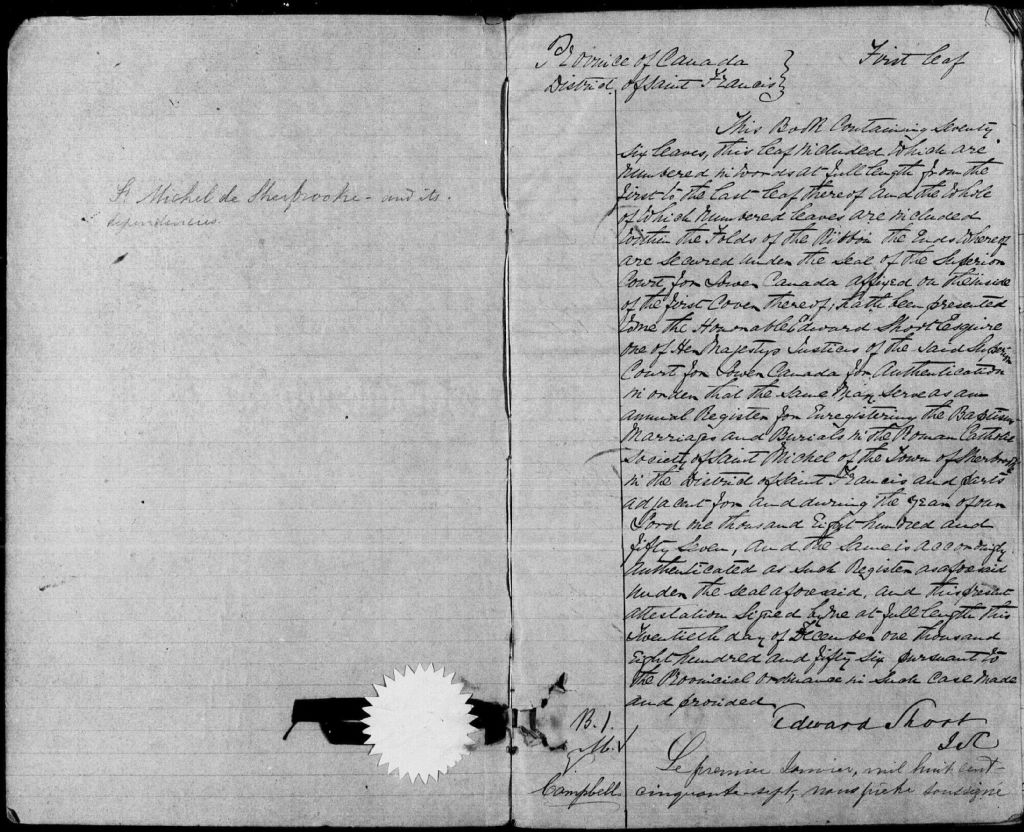 St Michel de Sherbrooke - and its
dependencies
Province of Canada }
District of Saint Francis }
First leaf
This Book Containing Seventy
Six leaves, this leaf included, Which are
numbered in words at full length from the
first to the last leaf thereof and the whole
of Which Numbered leaves are included
within the Folds of the Ribbon the Ends Whereof
are secured under the seal of the Superior
Court for Lower Canada affixed on the inside
of the first Cover thereof; hath been presented
to me the Honourable Edward Short Esquire
one of Her Majestys Justices of the said Superior
Court for Lower Canada for Authentication
in order that the same May Serve as an
annual Register for Enregistering the Baptisms
Marriages and Burials in the Roman Catholic
Society of Saint Michel of the Town of Sherbrooke
in the District of Saint Francis and parts
adjacent for and during the year of our
Lord one thousand Eight hundred and
fifty Seven, and the same is accordingly
authenticated as Such Register as aforesaid
under the seal aforesaid, and this present
attestation Signed by me at full length this
Twentieth day of December one thousand
Eight hundred and fifty Six pursuant to
the Provincial Ordinance in Such Case Made
and provided
Edward Short
B. 1.
M.
Campbell
Le premier Janvier, mil huit cent-
cinquante-sept, nous prêtre soussigné